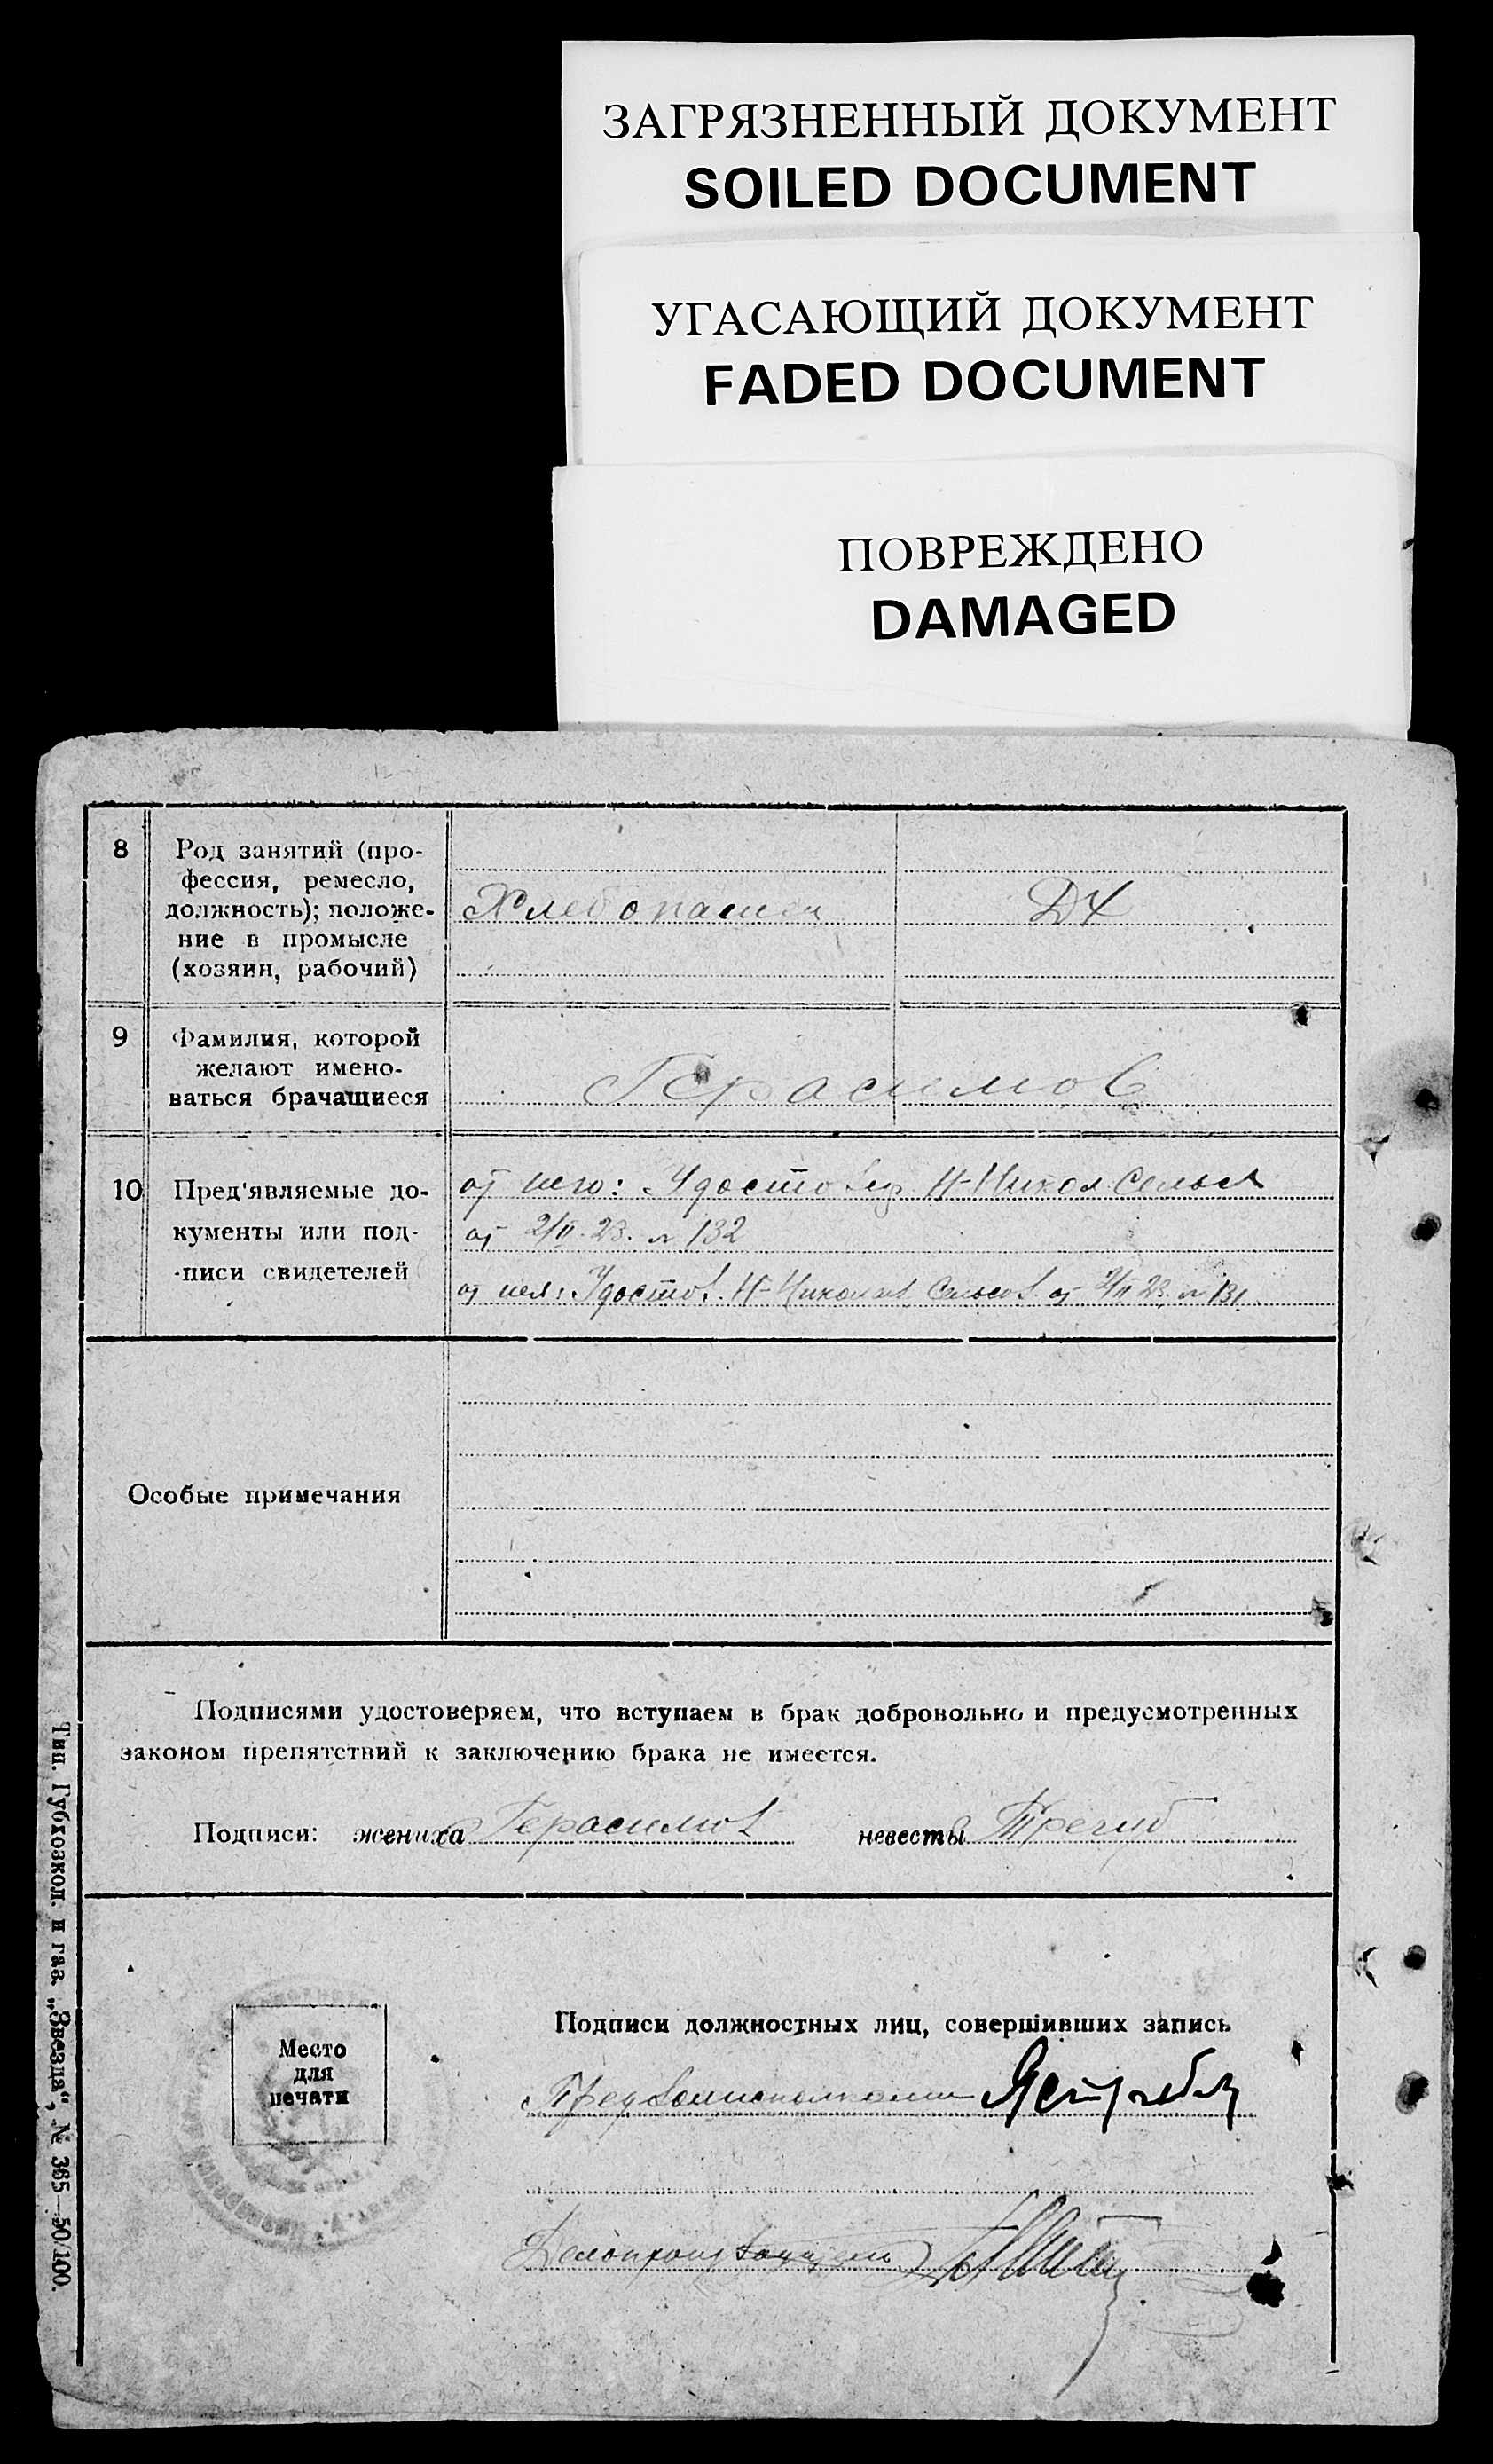 ЗАГРЯЗНЕННЫЙ ДОКУМЕНТ
SOILED DOCUMENT
УГАСАЮЩИЙ ДОКУМЕНТ
FADED DOCUMENT
ПОВРЕЖДЕНО
DAMAGED
8 Род занятий (про-
фессия, ремесло,
должность); положе-
ние в промысле
(хозяин, рабочий)
Хлебопашец ДХ
9 Фамилия, которой
желают имено-
ваться брачащиеся
Герасимов
10 Пред'являемые до-
кументы или под-
писи свидетелей
от него: Удостовер. Н-Никол. Сельсов
от 2/II-23. № 132
от нея: Удостов. Н-Николаев. Сельсов. от 2/II 23. № 131.
Особые примечания
Подписями удостоверяем, что вступаем в брак добровольно и предусмотренных
законом препятствий к заключению брака не имеется.
Подписи: жениха Герасимов невесты Трегуб
Место
для
печати
Подписи должностных лиц, совершивших запись
Предволисполкома
Делопроизводитель
Тип. Губхозкол. и газ. „Звезда", № 365—50/100.